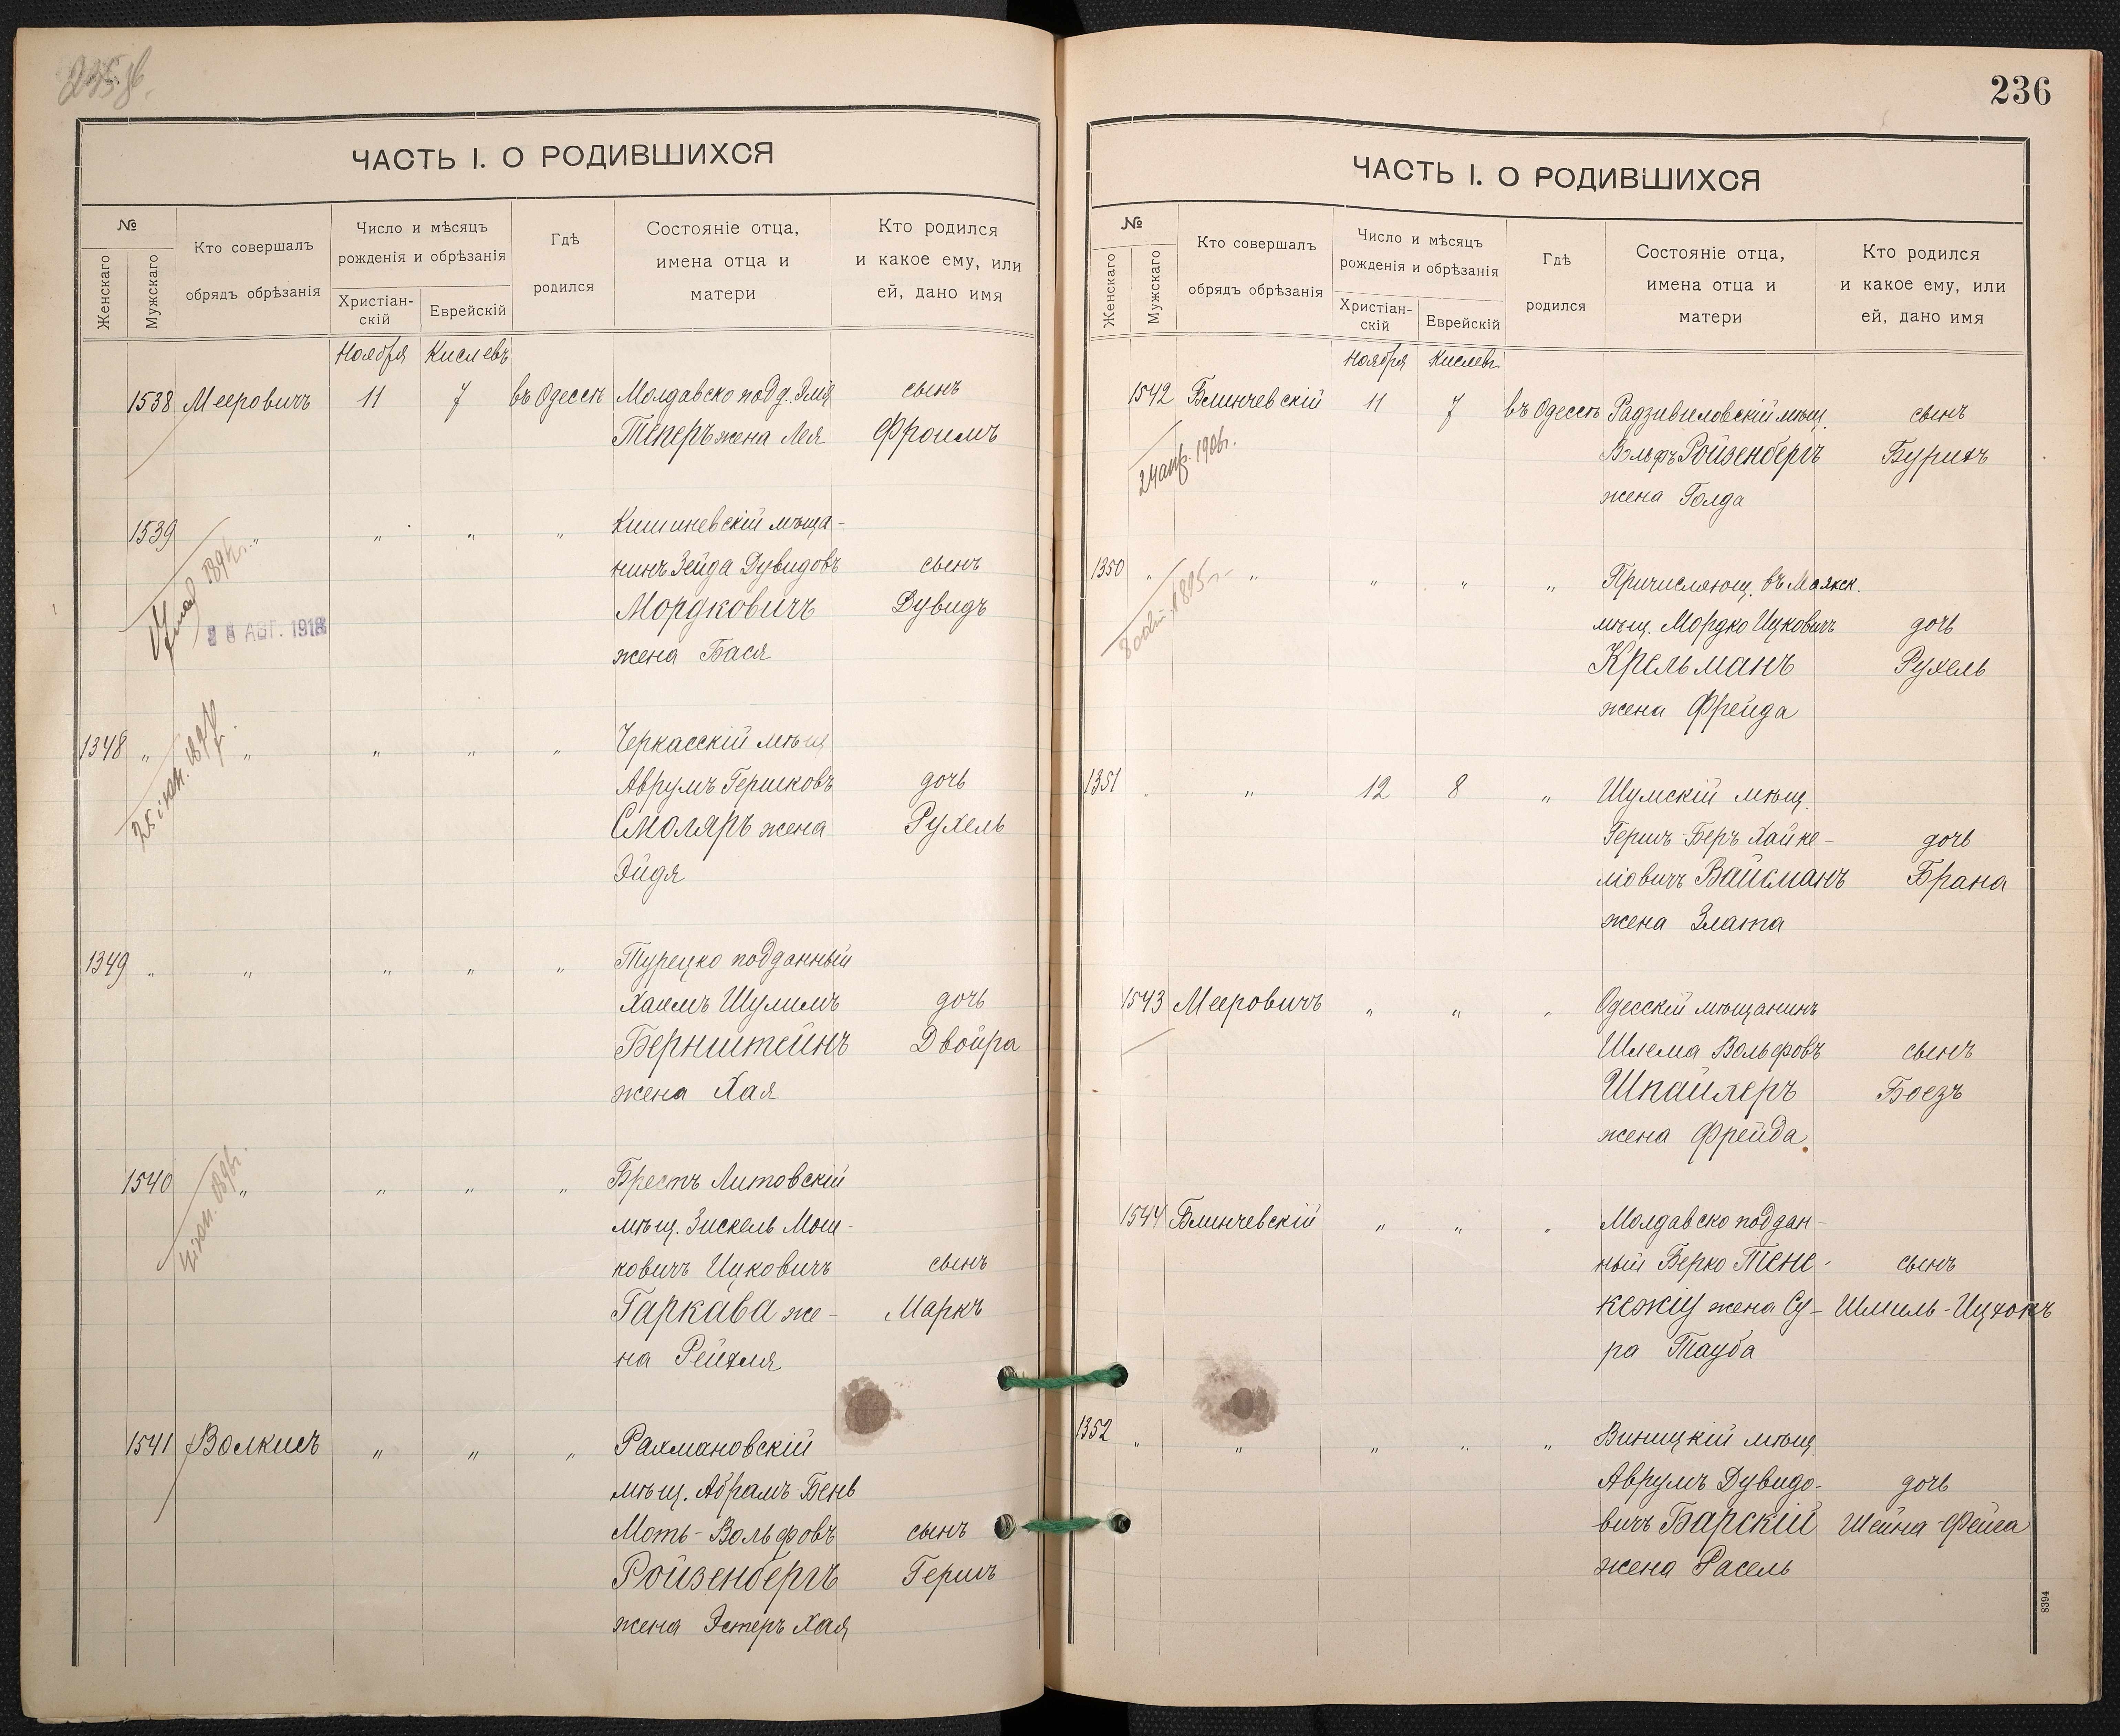 236
ЧАСТЬ I. О РОДИВШИХСЯ
№
Женскаго
Мужскаго
Кто совершалъ
обрядъ обрѣзанія
Число и мѣсяцъ
рожденія и обрѣзанія
Христіан-
скій
Еврейскій
Гдѣ
родился
Состояніе отца,
имена отца и
матери
Кто родился
и какое ему, или
ей, дано имя
Ноября Кислевъ
1538 Мееровичъ 11 7 въ Одессѣ Молдавско подд. сынъ
Теперъ жена Лея Фроимъ
1539 " " " " Кишиневскій мѣща-
нинъ Зейда Дувидовъ сынъ
Мордковичъ Дувидъ
28 АВГ. 1918
жена Бася
1348 " " " " " Черкасскій мѣщ.
Аврумъ Гершковъ дочь
Смоляръ жена Рухель
Эйдя
1349 " " " " " Турецко подданный
Хаимъ Шулимъ дочь
Бернштейнъ Двойра
жена Хая
1540 " " " " Брестъ Литовскій
мѣщ. Зискель Мош-
ковичъ Ицковичъ сынъ
Гаркава же- Маркъ
на Рейзля
1541 Волкисъ " " " Рахмановскій
мѣщ. Абрамъ Бень
Моть-Вольфовъ сынъ
Ройзенбергъ Гершъ
жена Эстеръ Хая
ЧАСТЬ I. О РОДИВШИХСЯ
№
Женскаго
Мужскаго
Кто совершалъ
обрядъ обрѣзанія
Число и мѣсяцъ
рожденія и обрѣзанія
Христіан-
скій
Еврейскій
Гдѣ
родился
Состояніе отца,
имена отца и
матери
Кто родился
и какое ему, или
ей, дано имя
Ноября Кислевъ
1542 Блинчевскій 11 7 въ Одессѣ Радзивиловскій мѣщ. сынъ
Вольфъ Ройзенбергъ Бурихъ
жена Голда
1350 " " " " " Причисляющ. въ Маякск.
мѣщ. Мордко Ицковичъ дочь
Крельманъ Рухель
жена Фрейда
1351 " " 12 8 " Шумскій мѣщ.
Гершъ-Беръ Хайке- дочь
ліовичъ Вайсманъ Брана
жена Злата
1543 Мееровичъ " " " Одесскій мѣщанинъ
Шлема Вольфовъ сынъ
Шпайхеръ Боезъ
жена Фрейда
1544 Блинчевскій " " " Молдавско поддан-
ный Берко Тене- сынъ
кежіу жена Су- Шмиль-Ицхокъ
ра Тауба
1352 " " " " " Виницкій мѣщ.
Аврумъ Дувидо- дочь
вичъ Барскій Шейна-Фейга
жена Расель
8394